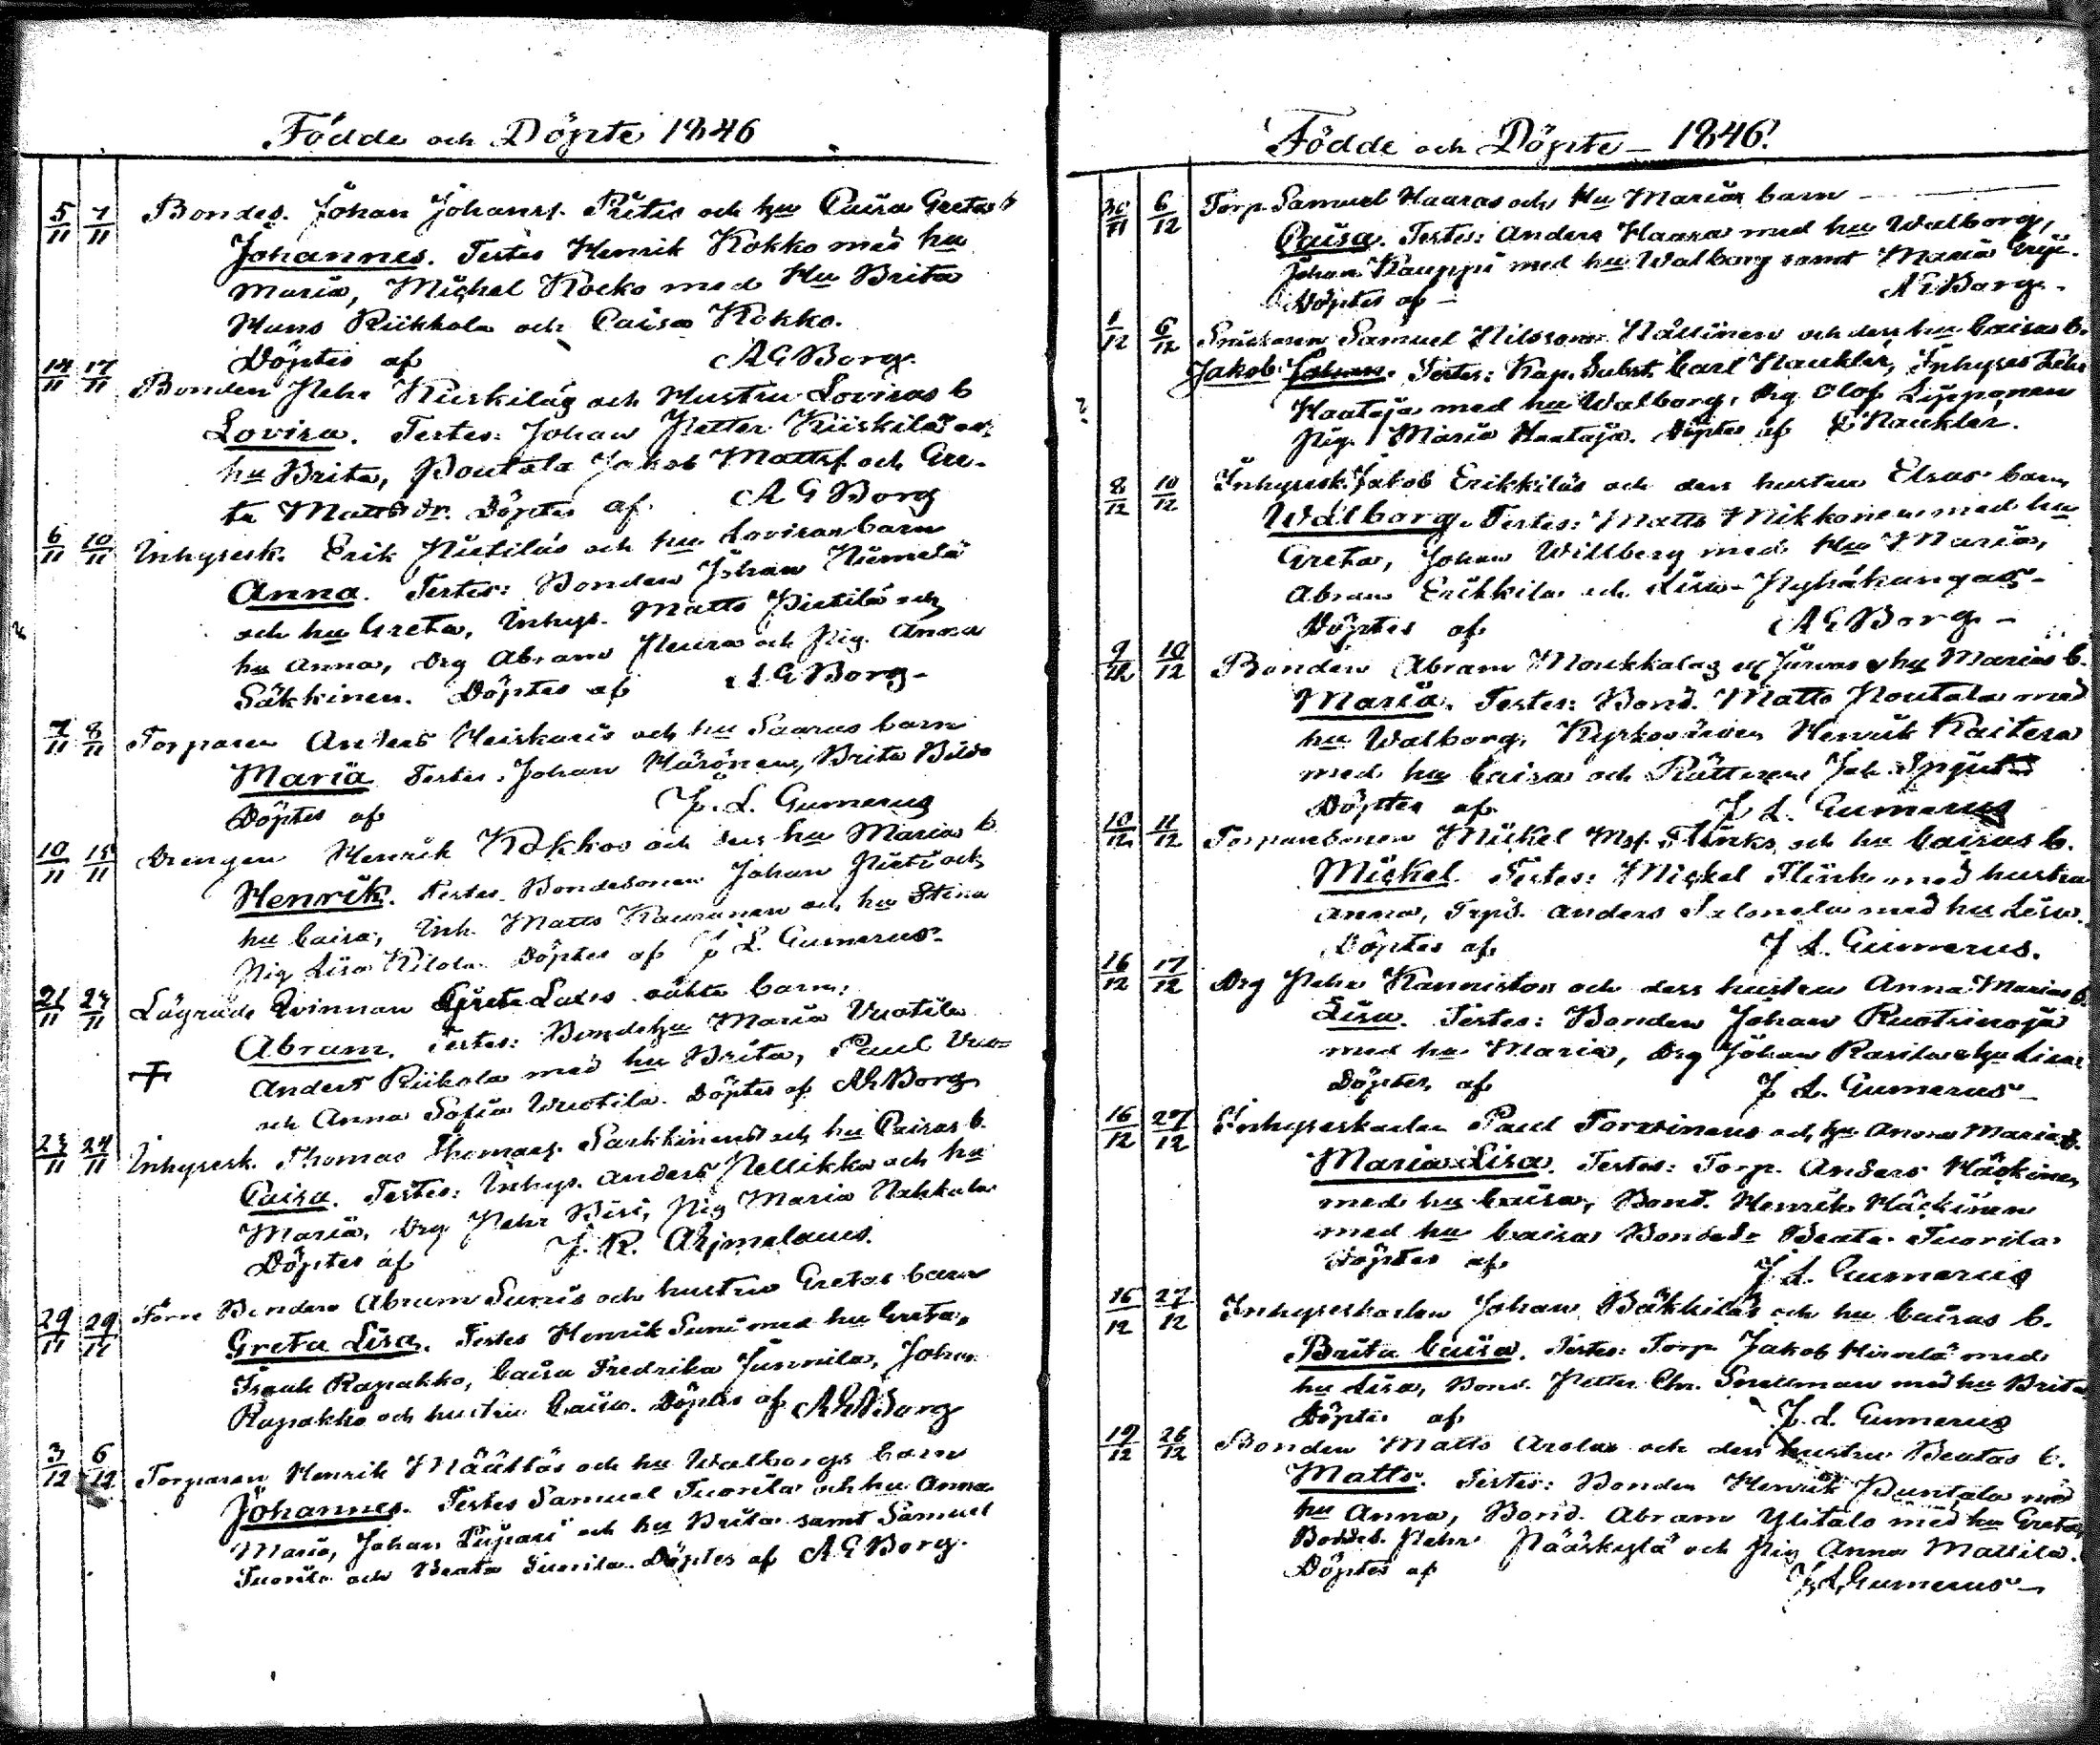 Födde och Döpte 1846
5/11 7/11 Bondes. Johan Johanss. Pitis och hu Caisa Gretas b
Johannes. Testes Henrik Kokko med hu
Maria, Michel Kocko med Hu Brita
Hans Riikkola och Caisa Kokko.
Döptes af A G Borg.
14/11 17/11 Bonden Pehr Kiiskiläs och Hustru Lovisas b
Lovisa. Testes: Johan Petter Kiiskilä och
hu Brita, Poutala Jakob Mattsf. och Gre-
ta Mattsdr. Döptes af A G Borg
6/11 10/11 Inhysesk. Erik Pietiläs och hu Lovisas barn
Anna. Testes: Bonden Johan Niemelä
och hu Greta, Inhys. Matts Pietilä och
hu Anna, Drg Abram Peura och Pig. Anna
Säkkinen. Döptes af A G Borg-
7/11 8/11 Torparen Anders Heiskaris och hu Saaras barn
Maria Testes: Johan Härönen, Brita
Döptes af J. L. Gumerus
10/11 15/11 Drengen Henrik Kokkos och dess hu Marias b
Henrik. Testes. Bondesonen Johan Pieti och
hu Caisa, Inh. Matts Kauranen och hu Stina
Pig Lisa Kilola. Döptes af J L. Gumerus-
21/11 24/11 Lägrade Qvinnan Greta oäkta barn,
Abram. Testes: Bondehu Maria Vuotila
Anders Riikola med hu Brita, Paul Vuo=
och Anna Sofia Wuotila. Döptes af A G Borg
23/11 24/11 Inhysesk. Thomas Thomass. Sarkkinens och hu Caisas b.
Caisa. Testes: Inhys. Anders Pellikka och hu
Maria, Drg Pehr Piri, Pig Maria Nakkala
Döptes af J. R. Ahjmelaeus.
29/11 29/11 Förre Bonden Abram Sunis och hustru Gretas barn
Greta Lisa. Testes Henrik Suni med hu Greta,
Isak Rapakko, Caisa Fredrika Junnila, Johan
Rapakko och hustru Caisa. Döptes af A G Borg
3/12 6/12 Torparen Henrik Määttäs och hu Walborgs barn
Johannes. Testes Samuel Tuorila och hu Anna
Maria, Johan och hu Brita samt Samuel
Tuorila och Beata Tuorila. Döptes af A G Borg.
Födde och Döpte - 1846.
30/11 6/12 Torp. Samuel Haaras och Hu Marias barn
Caisa. Testes: Anders Haara med hu Walborg,
Johan Kauppi med hu Walborg samt Maria
Döptes af - A G Borg-
1/12 6/12 Samuel Nilsson Hättinen och dess hu Caisas b.
Jakob Johan. Testes: Kap. Subst. Carl Nauklér, Inhyses Pehr
Haataja med hu Walborg, Drg Olof Lipponen
Pig. Maria Haataja. Döptes af C Nauklér.
8/12 10/12 Inhysesk. Jakob Erikkiläs och dess hustru Elsas barn
Walborg. Testes: Matts Mikkonen med hu
Greta, Johan Willberg med Hu Maria,
Abram Erikkila och Lisa Pyhäkangas-
Döptes af A G Borg-
9/12 10/12 Bonden Abram Moukkalas och hu Marias b.
Maria. Testes: Bond. Matts Poutala med
hu Walborg, Kyrkovärden Henrik Raitera
med hu Caisa och Rättaren Joh.
Döptes af J L. Gumerus
10/12 11/12 Torparesonen Mickel Msf. Flinks och hu Caisas b.
Mickel. Testes: Mickel Flink med hustru
Anna, Trps. Anders Salmela med hu Lisa.
Döptes af J L. Gumerus.
16/12 17/12 Drg Pehr Kanniston och dess hustru Anna Marias b.
Lisa. Testes: Bonden Johan Ruotsinoja
med hu Maria, Drg Johan Rasila & hu Lisa
Döptes af J L. Gumerus-
16/12 27/12 Inhyseskarlen Paul Torvinens och hu Anna Marias b.
Maria Lisa. Testes: Torp. Anders Häckinen
med hu Caisa, Bond. Henrik Häckinen
med hu Caisa Bondedr Beata Tuorila
Döptes af J L. Gumerus
16/12 27/12 Inhyseskarlen Johan Bäkkiläs och hu Caisas b.
Brita Caisa. Testes: Torp. Jakob Hirvelä med
hu Lisa, Bond. Petter Chr. Snellman med hu Brita
Döptes af J. L. Gumerus
19/12 26/12 Bonden Matts Arolas och dess hustru Beatas b.
Matts. Testes: Bonden Henrik Puntala med
hu Anna, Bond. Abram Ylitalo med hu Greta,
Bondes. Pehr Pääskylä och Pig Anna Mattila.
Döptes af J L Gumerus-